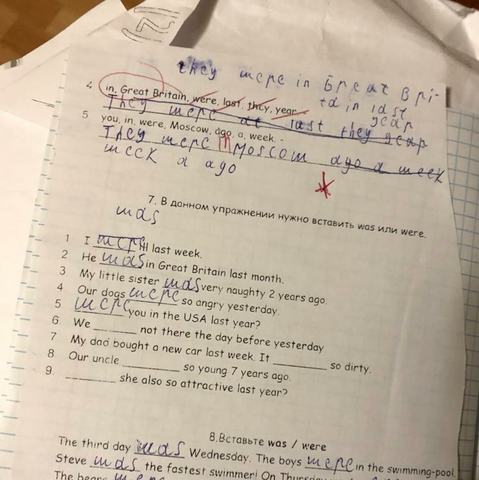 they were in Great Bri-
4 in, Great Britain, were, last, they, year.
tain last
year
They were at last they year
5 you, in, were, Moscow, ago, a, week. -
They were in Moscow ago a week
week a ago
7. В данном упражнении нужно вставить was или were.
was
1 I were ill last week.
2 He was in Great Britain last month.
3 My little sister was very naughty 2 years ago.
4 Our dogs were so angry yesterday.
5 were you in the USA last year?
6 We ______ not there the day before yesterday
7 My dad bought a new car last week. It ______ so dirty.
8 Our uncle ______ so young 7 years ago.
9. ______ she also so attractive last year?
8.Вставьте was / were
The third day was Wednesday. The boys were in the swimming-pool.
Steve was the fastest swimmer! On Thursday
The bears were